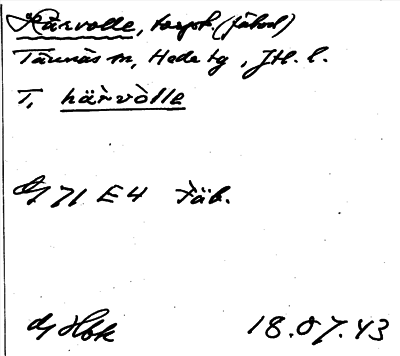 Härvolle, terpt. (fäbod)
Tännäs sn, Hede tg, Jtl. l.
T, hä̀rvòlle
71 E4 Fäb.
18.07.43